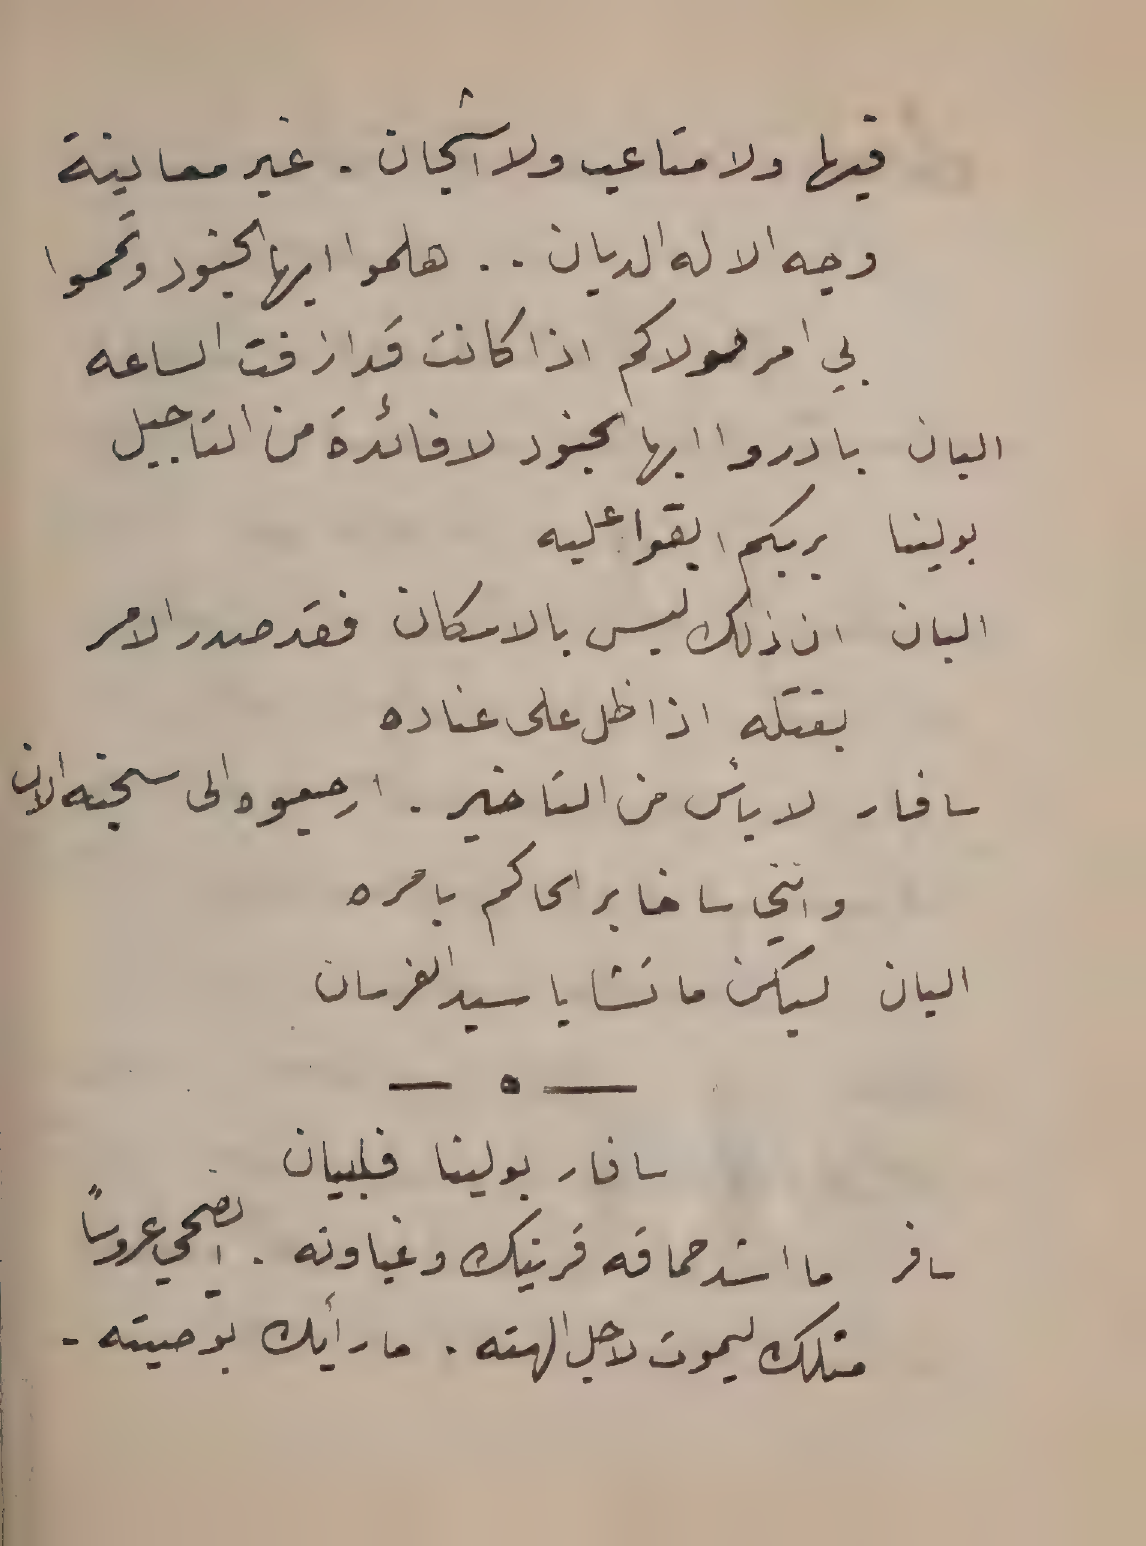 ٨
فيها ولا متاعب ولا اشجان . غير معاينة
وجه الاله الديان .. هلموا ايها الجنود وتمموا
بي امر مولاكم اذا كانت قد ازفت الساعه
البان بادروا ايها الجنود لا فائدة من التأجيل
بولينا بربكم ابقوا عليه
البان ان ذلك ليس بالامكان فقد صدر الامر
بقتله اذا ظل على عناده
سافار لا بأس من التاخير . ارجعوه الى سجنه الان
وانني ساخابر الحاكم بامره
البان ليكن ما تشا يا سيد الفرسان
— • —
سافار بولينا فلبيان
سافر ما اشد حماقه قرينك وغباوته . ايضحي عروساً
مثلك ليموت لاجل الهته . ما رأيك بوصيته -